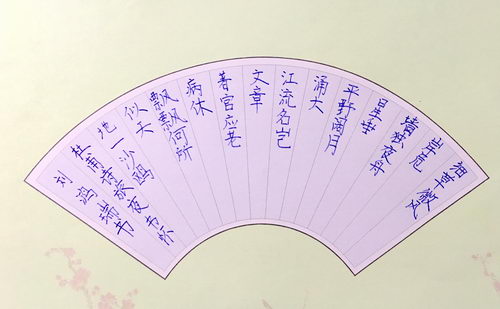 细草微风
岸危
樯独夜舟
星垂
平野阔月
涌大
江流名岂
文章
著官应老
病休
飘飘何所
似天
地一沙鸥
杜甫诗旅夜书怀
刘鸿瑞书